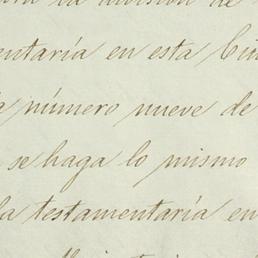 la división de
entaría en esta Ciu
número nueve de
se haga lo mismo
la testamentaría en